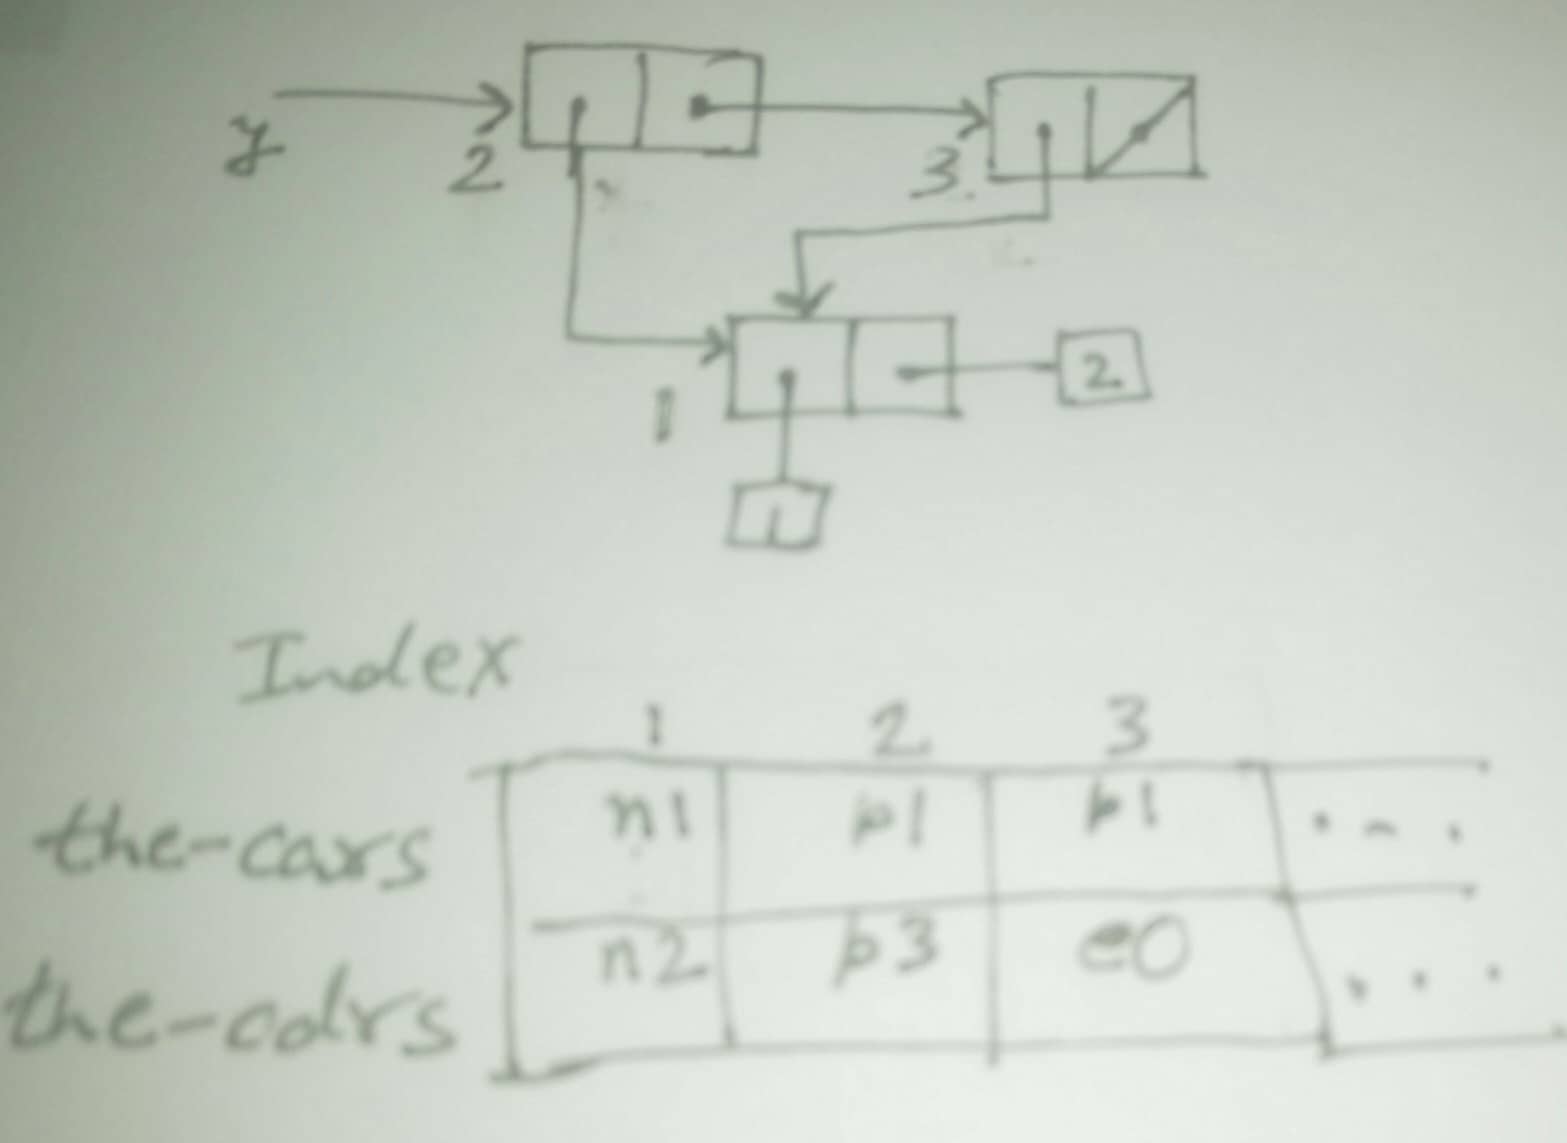 y 2 3.
1 2
1
Index
1 2 3
the-cars n1 p1 p1 . - .
the-cdrs n2 p3 e0 . . .